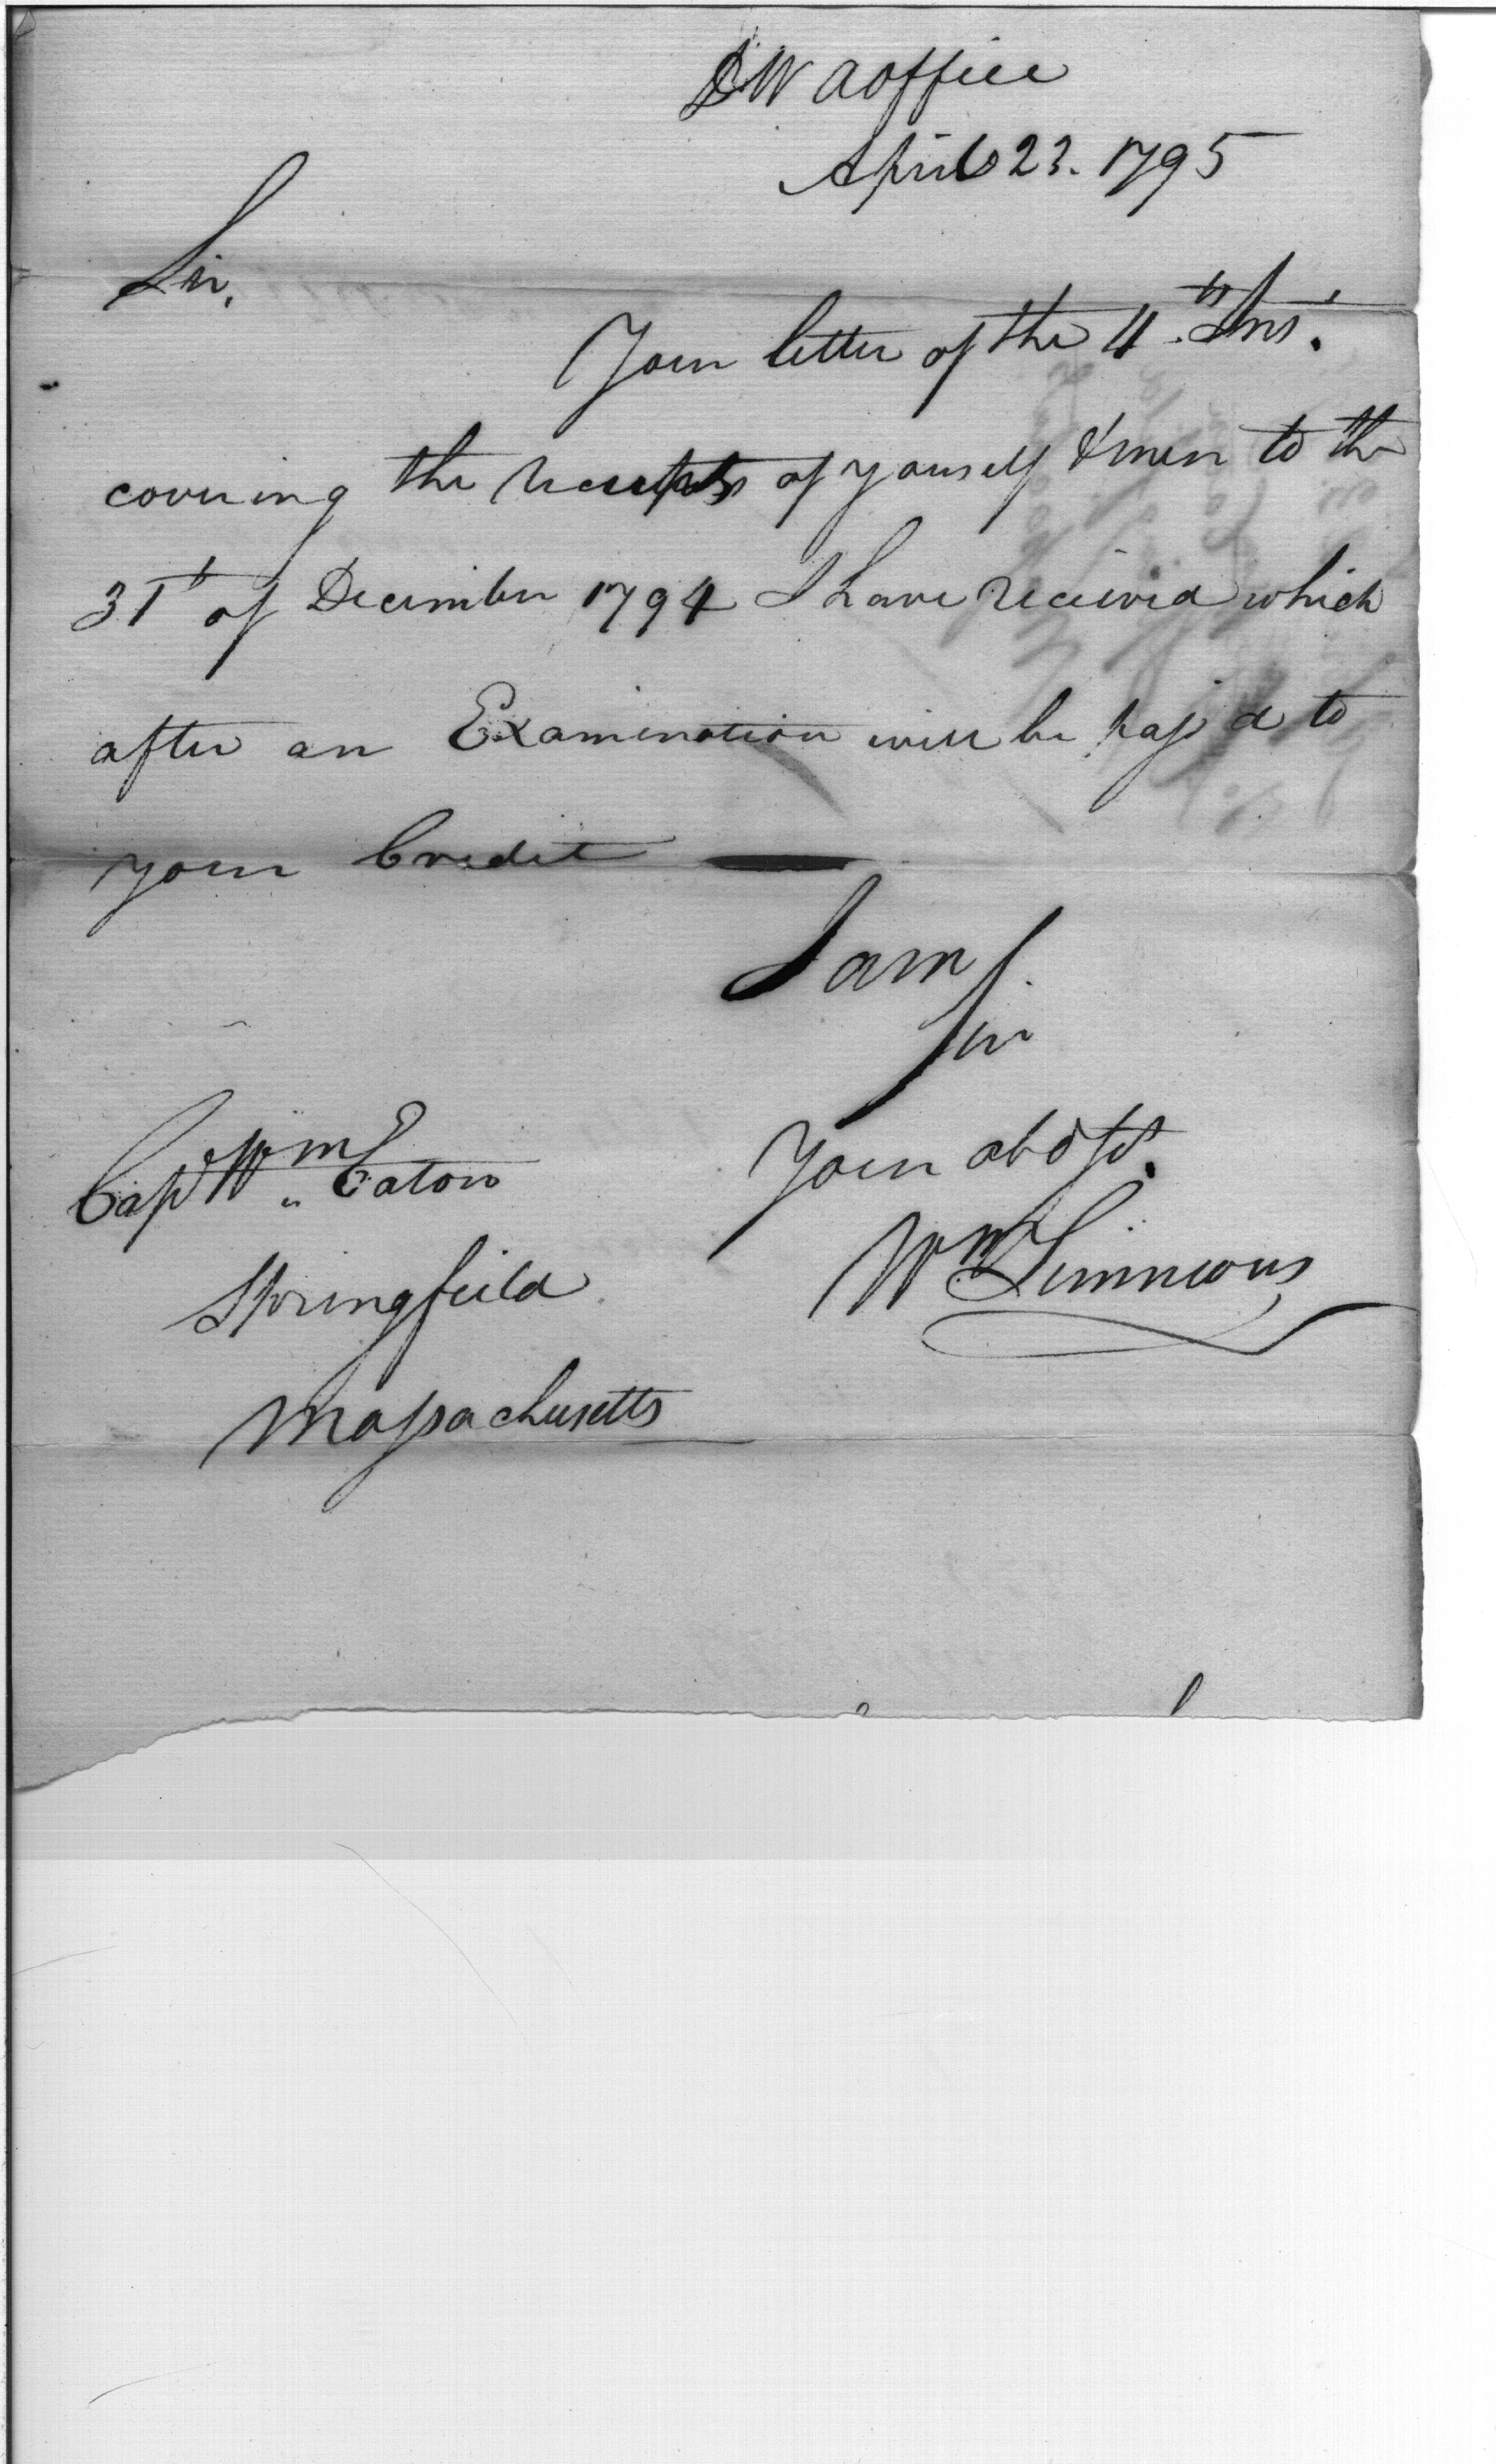 DW aoffice
April 23. 1795
Sir,
Your letter of the 4th Inst.
covering the receipts of yourself & men to the
31t of December 1794 I have received which
after an Examination will be pass'd to
your Credit —
I am
Sir
Your obdt St.
Wm Simmons
Capt Wm Eaton
Springfeild
Massachusetts